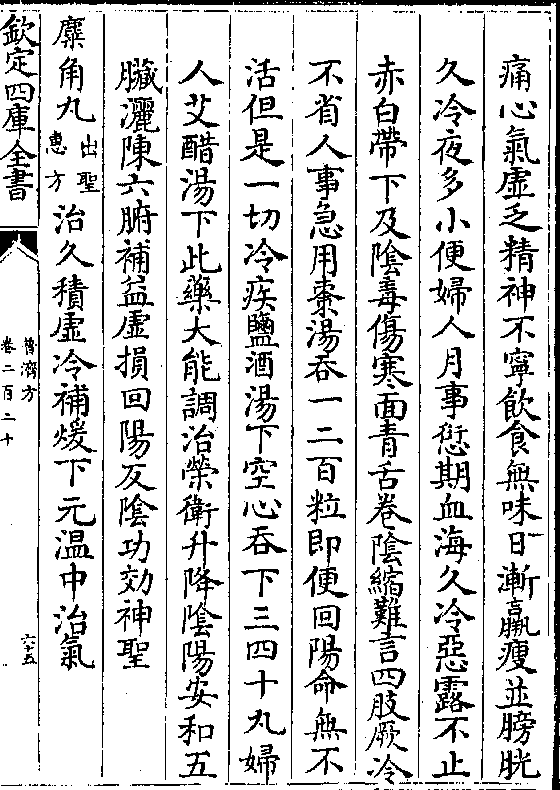 痛心氣虛乏精神不寧飲食無味日漸羸瘦並膀胱
久冷夜多小便婦人月事愆期血海久冷惡露不止
赤白帶下及陰毒傷寒面青舌卷陰縮難言四肢厥冷
不省人事急用棗湯吞一二百粒即便回陽命無不
活但是一切冷疾鹽酒湯下空心吞下三四十丸婦
人艾醋湯下此藥大能調治榮衛升降陰陽安和五
臟灑陳六腑補益虛損回陽反陰功効神聖
麋角丸出聖惠方治久積虛冷補煖下元温中治氣
欽定四庫全書
普濟方
卷二百二十
六十五